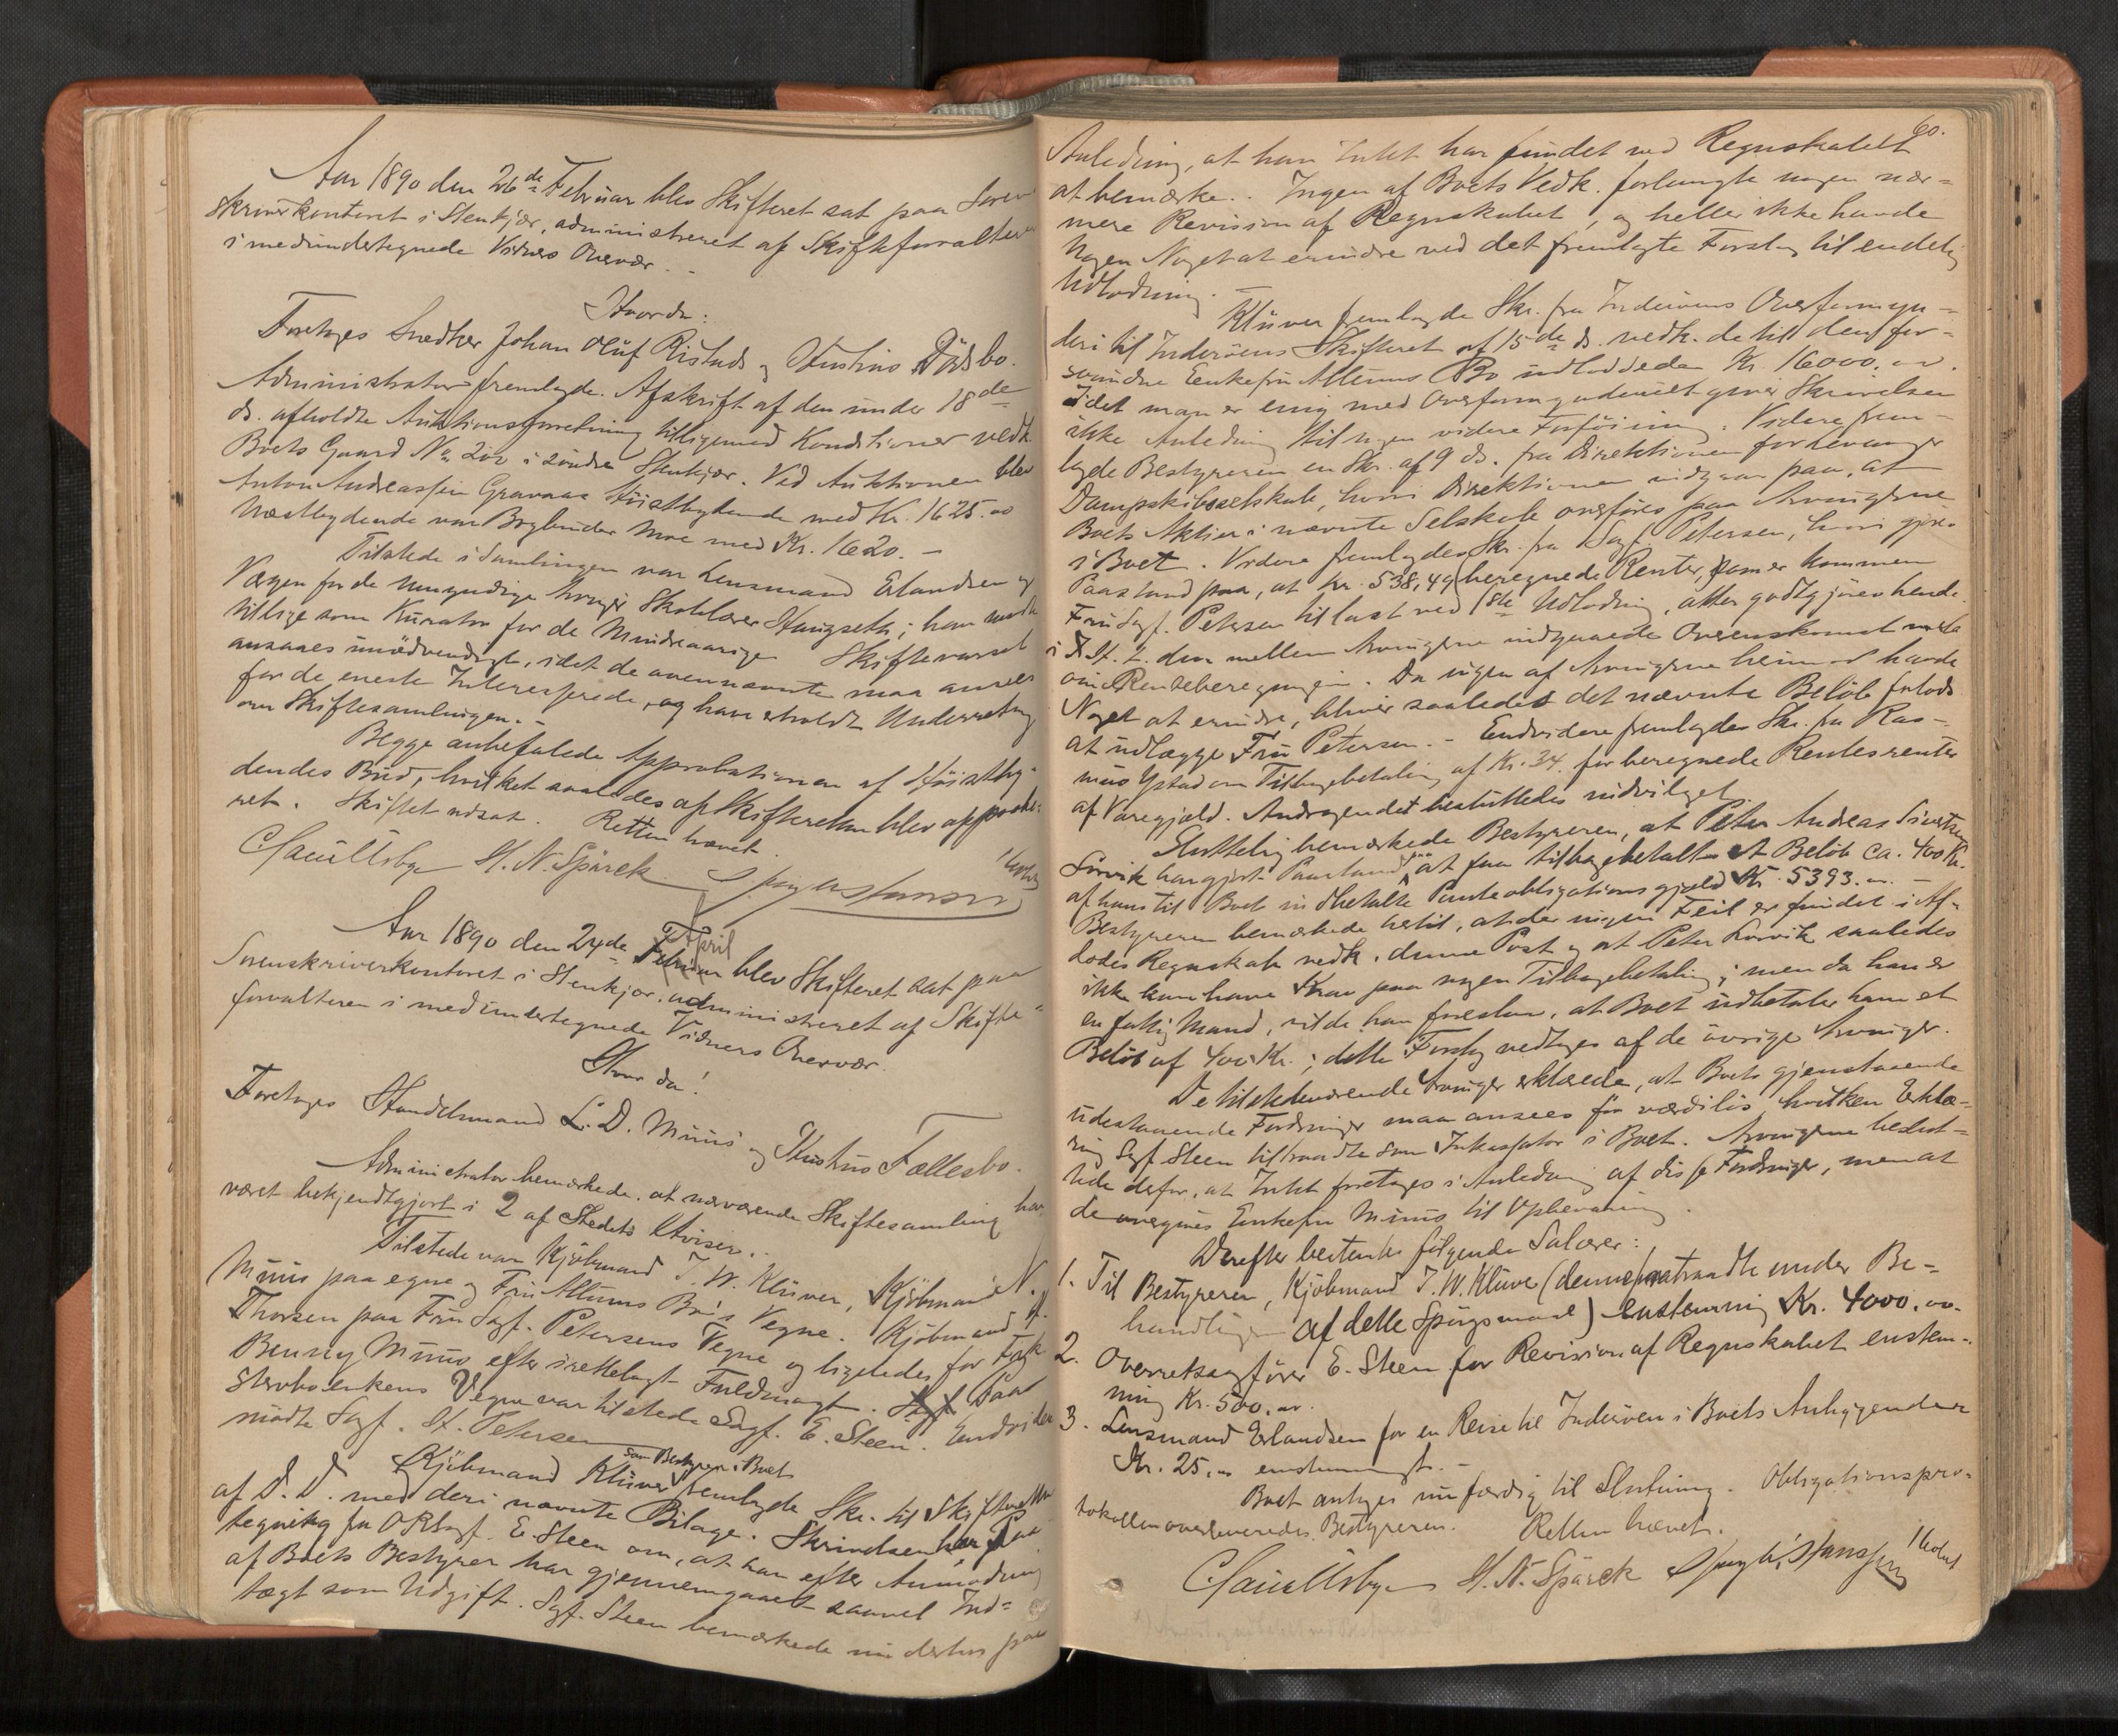 Aar 1890 den 26de Februar blev Skifteret sat paa Soren
skriverkontoret i Stenkjær, administreret af Skifteforvalteren
i medundertegnede Vidners Overvær. -
Hvorda:
Foretages Snedker Johan Oluf Ristads og Hustrus Dødsbo.
Administrator fremlagde Afskrift af den under 18de
ds. afholdte Auktionsforretning tilligemed Konditioner vedk.
Boets Gaard No 202 i søndre Stenkjær. Ved Auktionen blev
Anton Andreassen Gravaas Høistbydende med Kr. 1625.00
Næstbydende var Bogbinder Moe med Kr. 1620. -
Tilstede i Samlingen var Lensmand Erlandsen og
Værgen for de Umyndige Arvinger Skolelærer Haugseth; han mødte
tillige som Kurator for de Mindreaarige Skiftevarsel
ansaaes unødvendigt, idet de ovennævnte maa ansees
for de eneste Interesserede, og have erholdt Underretning
om Skiftesamlingen. -
Begge anbefalede Approbationen af Høistby-
dendes Bud, hvilket saaledes af Skifteretten blev approbe-
ret. Skiftet udsat. Retten hævet.
H. N. Spärck
Aar 1890 den 24de Februar April blev Skifteret sat paa
Sorenskriverkontoret i Stenkjær, administreret af Skifte-
forvalteren i medundertegnede Vidners Overvær.
Hvorda:
Foretages Handelsmand L. D. Müüs og Hustrus Fællesbo.
Administrator bemærkede, at nærværende Skiftesamling har
været bekjendtgjort i 2 af Stedets Aviser. -
Tilstede var Kjøbmand I. W. Klüver, Kjøbmand N.
Müüs paa egne og Fru Altums Bo's Vegne. Kjøbmand H.
Thorsen paa Fru Sagf. Petersens Vegne og ligeledes for Frøk
Benney Müüs efter irettelagt Fuldmagt. Paa
Stervboenkens Vegne var tilstede Sagf. E. Steen. Endvidere
mødte Sagf. H. Petersen
Kjøbmand Klüver som Bestyrer i Boet fremlagde Skr. til Skifteretten
af D. D. med deri nævnte Bilage. Skrivelsen har Paa-
tegning fra ORsagf. E. Steen om, at han efter Anmodning
af Boets Bestyrer har gjennemgaaet saavel Ind-
tægt som Udgift. Sagf. Steen bemærkede nu derhos paa
60.
Anledning, at han Intet har fundet ved Regnskabet
at bemærke. Ingen af Boets Vedk. forlangte nogen nær-
mere Revision af Regnskabet, og heller ikke havde
Nogen Noget at erindre ved det fremlagte Forslag til endelig
Udlodning. -
Klüver fremlagde Skr. fra Inderøens Overformyn-
deri til Inderøens Skifteret af 15de ds. vedk. de til den for-
svundne Enkefru Altums Bo udloddede Kr. 16000.00.
Idet man er enig med Overformynderiet giver Skrivelsen
ikke Anledning til nogen videre Forføining. Videre frem-
lagde Bestyreren en Skr. af 9 ds. fra Direktionen for
Dampskibsselskab, hvori Direktionen indgaar paa, at
Boets Aktier i nævnte Selskab overføres paa Arvingerne
i Boet. Videre fremlagdes Skr. fra Sagf. Petersen, hvori gjøres
Paastand paa, at Kr. 538,49 beregnede Renter, som er kommen
Fru Sagf. Petersen til last ved 1ste Udlodning, atter godtgjøres hende
i H. t. den mellem Arvingerne indgaaede Overenskomst
om Renteberegningen. Da ingen af Arvingerne herimod havde
Noget at erindre, bliver saaledes det nævnte Beløb forlods
at udlægge Fru Petersen. - Endvidere fremlagdes Skr. fra Ras-
mus Ystad om Tilbagebetaling af Kr. 34. for beregnede Rentesrenter
af Varegjæld. Andragendet besluttedes indvilget.
Sluttelig bemærkede Bestyreren, at Peter Andreas Sivertsen
Korvik har gjort Paastand paa at faa tilbagebetalt et Beløb ca. 400 Kr.
af hans til Boet indbetalte Panteobligationsgjæld Kr. 5393.00. -
Bestyreren bemærkede hertil, at der ingen Feil er fundet i Af-
dødes Regnskab vedk. denne Post og at Peter Korvik saaledes
ikke kan have Krav paa nogen Tilbagebetaling; men da han er
en fattig Mand, vilde han foreslaa, at Boet udbetaler ham et
Beløb af 400 Kr.; dette Forslag vedtages af de øvrige Arvinger.
De tilstedeværende Arvinger erklærede, at Boets gjenstaaende
udestaaende Fordringer maa ansees for værdiløs, hvilken Erklæ-
ring Sagf. Steen tiltraadte som Inkassator i Boet. Arvingerne beslut-
tede derfor, at Intet foretages i Anledning af disse Fordringer, men at
de overgives Enkefru Müüs til Opbevaring.
Derefter bestemtes følgende Salærer:
1. Til Bestyreren, Kjøbmand I. W. Klüver (denne fratraadte under Be-
handlingen af dette Spørgsmaal) enstemmig Kr. 4000.00.
2. Overretssagfører E. Steen for Revision af Regnskabet enstem-
mig Kr. 500.00.
3. Lensmand Erlandsen for en Reise til Inderøen i Boets Anliggender
Kr. 25.00 enstemmigt. -
Boet antages nu færdig til Slutning. Obligationspro-
tokollen overleveredes Bestyreren. Retten hævet.
H. N. Spärck